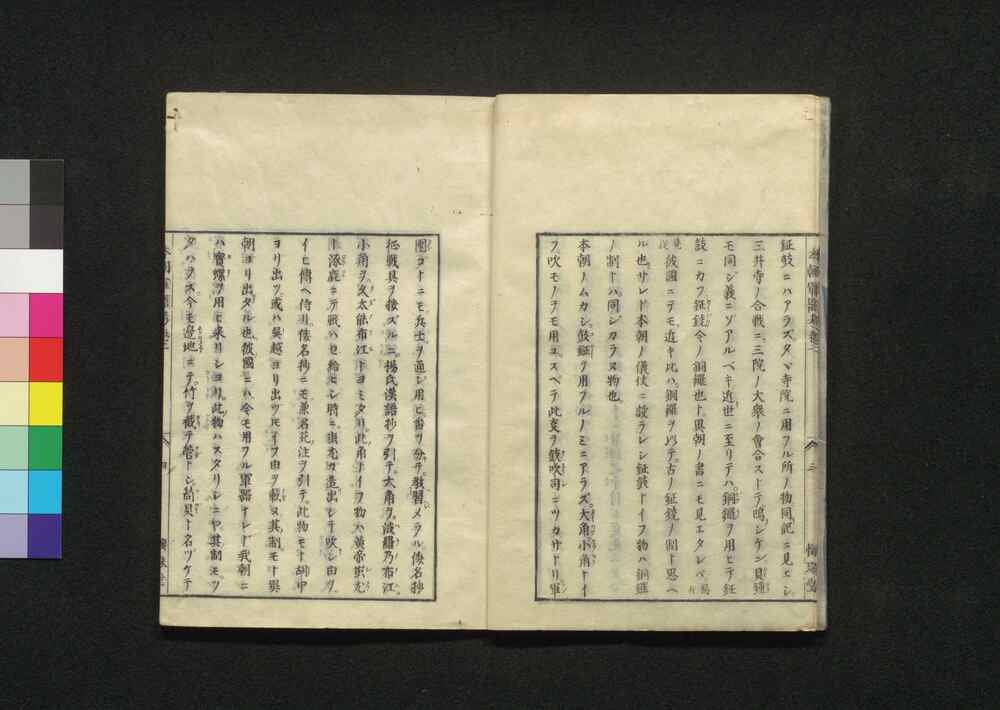 鉦鼓ニハアラズタヾ寺院ニ用フル所ノ物同記ニ見エシ
三井寺ノ合戦ニ三院ノ大衆ノ會合ストテ鳴シケン貝鐘
モ同シ義ニゾアルベキ近世ニ至リテハ銅鑼ヲ用ヒテ鉦
鼓ニカフ鉦
今ノ銅鑼也ト異朝ノ書ニモ見エタレバ
彼國ニテモ近キ比ハ銅鑼ヲ以テ古ノ鉦
ノ制ト思ヘ
ル也サレド本朝ノ儀仗ニ設ラレシ鉦鼓トイフ物ハ銅鑼
ノ制トハ同シカラヌ物也
本朝ノムカシ鼓鉦ヲ用フルノミニアラズ大角小角トイ
フ吹モノヲモ用ユスベテ此等ヲ鼓吹司ニツカサドリ軍
團ゴトニモ兵士ヲ通シ用ヒ番ヲ分テ教習メラル倭名抄
征戦具ヲ按ズルニ楊氏漢語抄ヲ引テ大角ヲ波羅乃布江
小角ヲ久太能布江トヨミタリ此角トイフ物ハ黄帝蚩尤
ト涿鹿ニテ戦ハセ給ヒシ時ニ蚩尤ガ造出シテ吹シ由ヲ
イヒ傳ヘ侍リ倭名抄ニモ兼名苑注ヲ引テ此物モト胡中
ヨリ出ツ或ハ呉越ヨリ出ツトイフ由ヲ載ス其制モト異
朝ヨリ出タル也彼國ニハ今モ用フル軍器ナレド我朝ニ
ハ寶螺ヲ用ヒ来リショリ此物ハスタリシニヤ其制モツ
タハラズ今モ邉地ニテ竹ヲ截テ管トシ
貝ト名ヅケテ